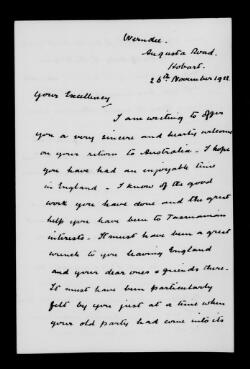 Werndee.
Augusta Road.
Hobart.
26th November 1922
Your Excellency
I am writing to offer
you a very sincere and hearty welcome
on your return to Australia - I hope
you have had an enjoyable time
in England - I know of the good
work you have done and the great
help you have been to Tasmanian
interests. It must have been a great
wrench to you leaving England
and your dear ones & friends there.
It must have been particularly
felt by you just at a time when
your old party had come into its